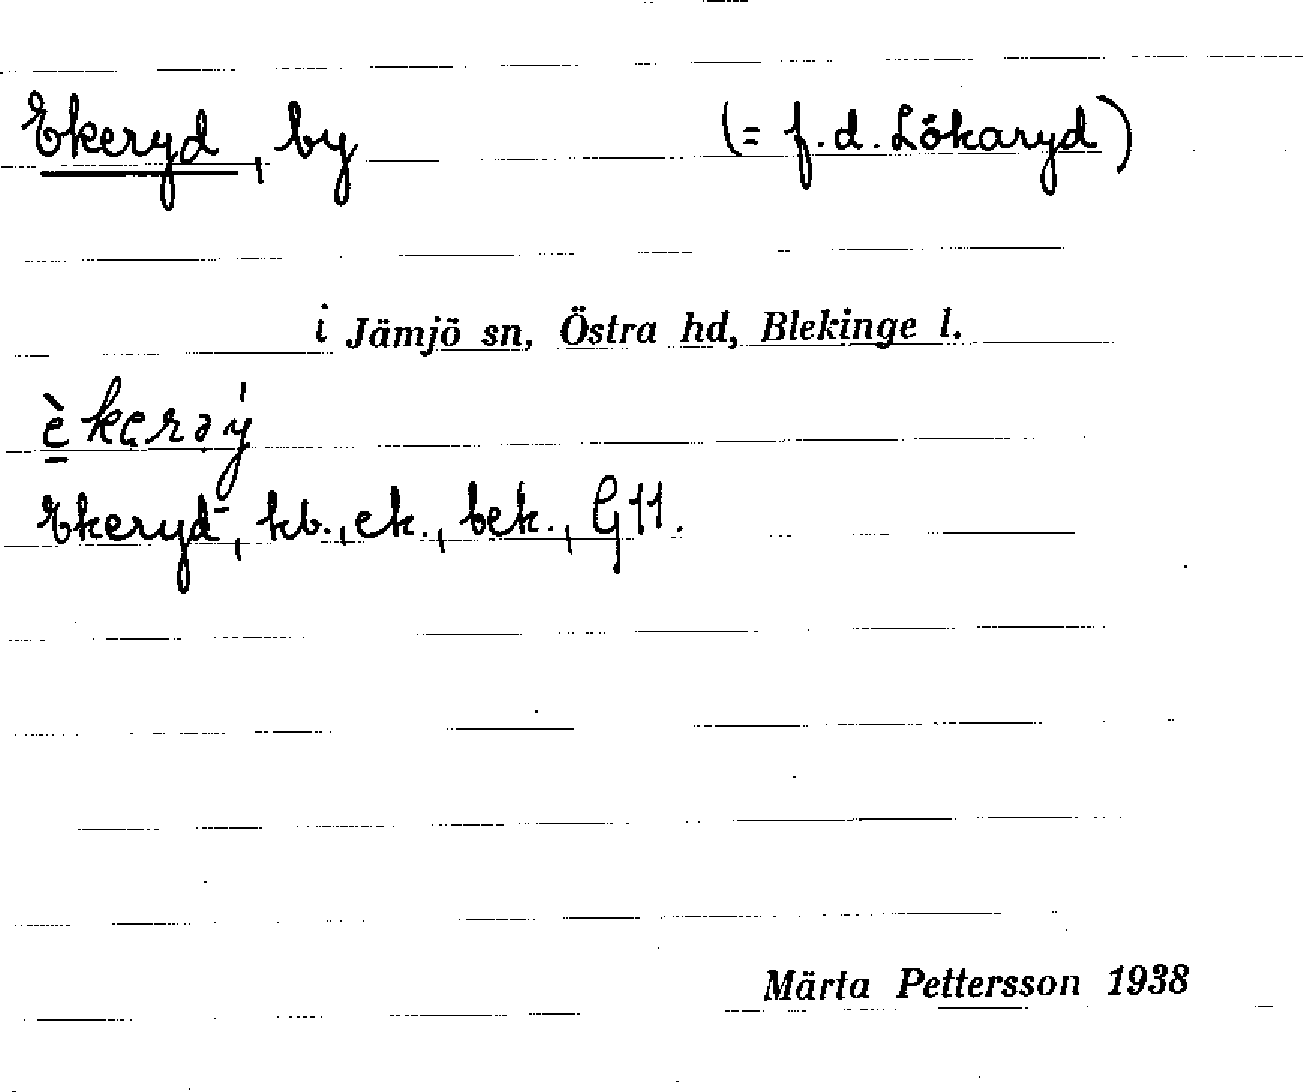 Ekeryd, by (= f.d. Lökaryd)
i Jämjö sn, Östra hd, Blekinge l.
Ekeryd, kb., ek., bek., G11.
Märta Pettersson 1938